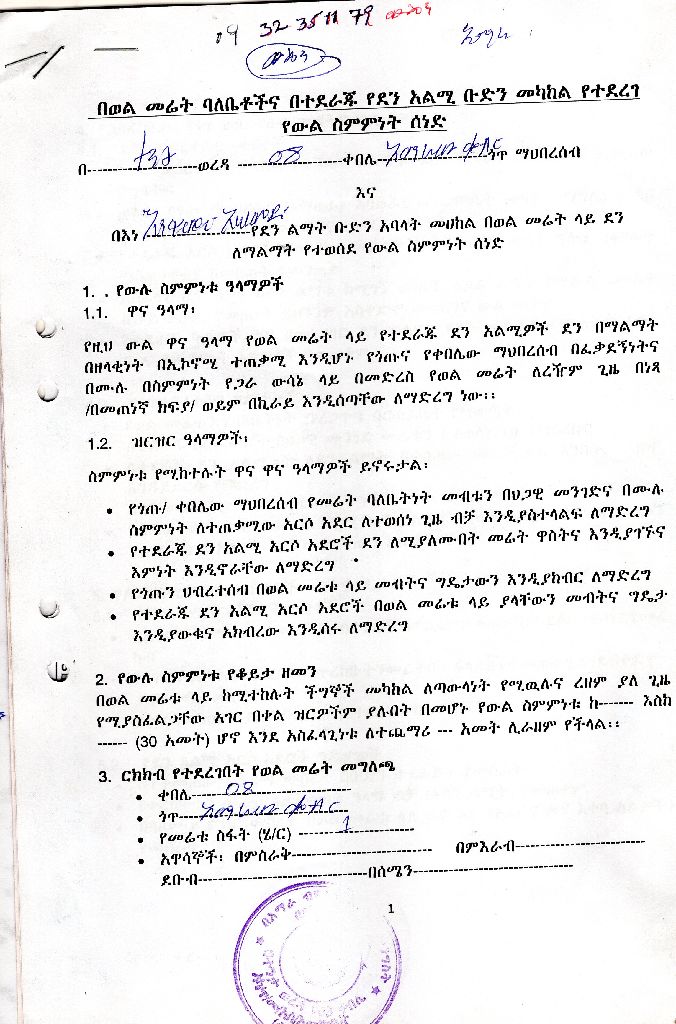 09 32 35 11 79
በወል መሬት ባለቤቶችና በተደራጁ የደን አልሚ ቡድን መካከል የተደረገ
የውል ስምምነት ሰነድ
በ----------ወረዳ ---- 08 ----------ቀበሌ------------ጎጥ ማህበረሰብ
እና
በእነ ------------የደን ልማት ቡድን አባላት መሀከል በወል መሬት ላይ ደን
ለማልማት የተወሰደ የውል ስምምነት ሰነድ
1. . የውሉ ስምምነቱ ዓላማዎች
1.1. ዋና ዓላማ፡
የዚህ ውል ዋና ዓላማ የወል መሬት ላይ የተደራጁ ደን አልሚዎች ደን በማልማት
በዘላቂነት በኢኮኖሚ ተጠቃሚ እንዲሆኑ የጎጡና የቀበሌው ማህበረሰብ በፈቃደኝነትና
በሙሉ በስምምነት የጋራ ውሳኔ ላይ በመድረስ የወል መሬት ለረዥም ጊዜ በነጻ
/በመጠነኛ ክፍያ/ ወይም በኪራይ እንዲሰጣቸው ለማድረግ ነው፡፡
1.2. ዝርዝር ዓላማዎች፡
ስምምነቱ የሚከተሉት ዋና ዋና ዓላማዎች ይኖሩታል፡
• የጎጡ/ ቀበሌው ማህበረሰብ የመሬት ባለቤትነት መብቱን በህጋዊ መንገድና በሙሉ
ስምምነት ለተጠቃሚው አርሶ አደር ለተወሰነ ጊዜ ብቻ እንዲያስተላልፍ ለማድረግ
• የተደራጁ ደን አልሚ አርሶ አደሮች ደን ለሚያለሙበት መሬት ዋስትና እንዲያገኙና
እምነት እንዲኖራቸው ለማድረግ
• የጎጡን ህብረተሰብ በወል መሬቱ ላይ መብትና ግዴታውን እንዲያከብር ለማድረግ
• የተደራጁ ደን አልሚ አርሶ አደሮች በወል መሬቱ ላይ ያላቸውን መብትና ግዴታ
እንዲያውቁና አክብረው እንዲሰሩ ለማድረግ
2. የውሉ ስምምነቱ የቆይታ ዘመን
በወል መሬቱ ላይ ከሚተከሉት ችግኞች መካከል ለጣውላነት የሚዉሉና ረዘም ያለ ጊዜ
የሚያስፈልጋቸው አገር በቀል ዝርዎችም ያሉበት በመሆኑ የውል ስምምነቱ ከ------- እስከ
------ (30 አመት) ሆኖ እንደ አስፈላጊነቱ ለተጨማሪ --- አመት ሊራዘም የችላል፡፡
3. ርክክብ የተደረገበት የወል መሬት መግለጫ
• ቀበሌ---- 08 ------------------
• ጎጥ------------------------
• የመሬቱ ስፋት (ሄ/ር) ------- 1 ----------
• አዋሳኞች፡ በምስራቅ------------------------ በምእራብ----------------------
ደቡብ-----------------------------በሰሜን----------------------------
1